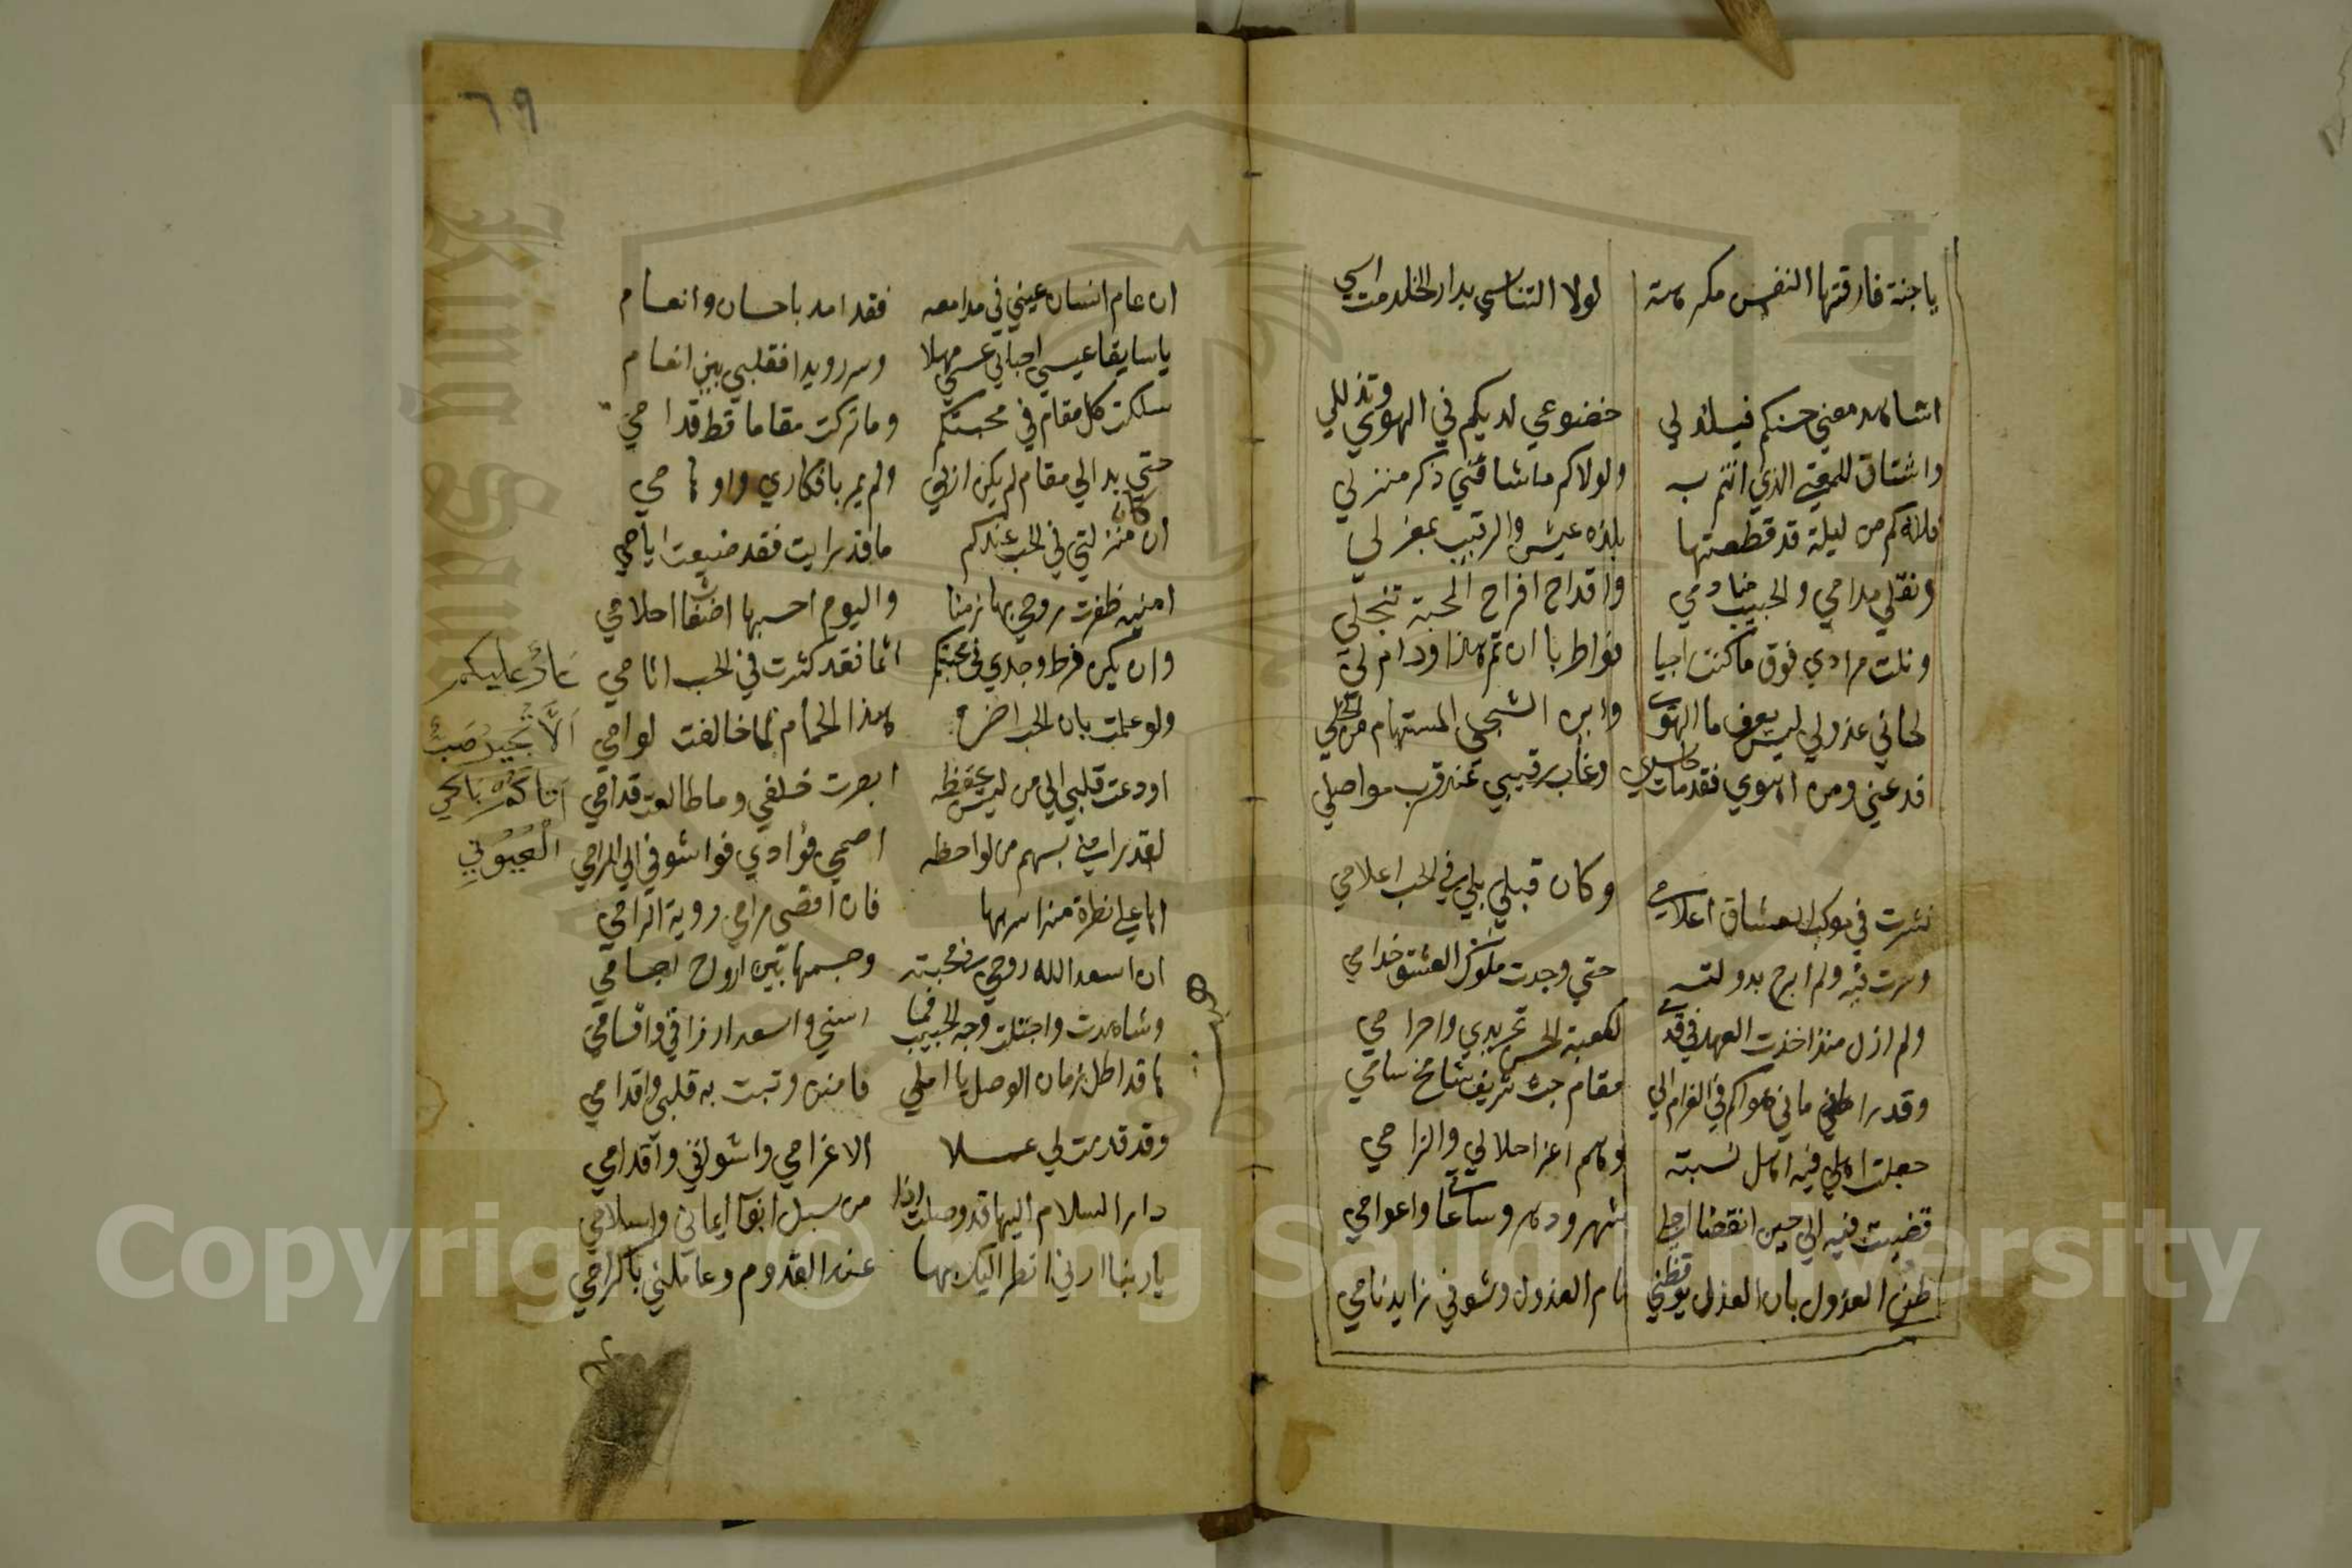 ياجنة فارقتها النفس مكرهة لولا التناسي بدار الخلد مت اسي
اشاهد معني حسنكم فيلذ لي خضوعي لديكم في الهوي وتذللي
واشتاق للمعني الذي انتم به ولولاكم ماشاقني ذكر منزلي
فلله كم من ليلة قد قطعتها بلذه عيش والرقيب بمعزلي
ونقلي مدامي والحبيب منادمي واقداح افراح المحبة تنجلي
ونلت مرادي فوق ماكنت راجيا فواطربا ان تم هذا ودام لي
لحاني عذولي ليس يعرف ما الهوي واين الشجي المستهام من الخلي
فدعني ومن اهوي فقد مات حاسدي وغاب رقيبي عند قرب مواصلي
نشرت في موكب العشاق اعلامي وكان قبلي بلي في الحب اعلامي
وسرت فيه ولم ابرح بدولته حتي وجدت ملوك العشق خدامي
ولم ازل منذ اخذت العهد في قدمي لكعبة الحسن تجريدي واحرامي
وقد رماني هواكم في الغرام الي مقام حب شريف شامخ سامي
جعلت اهلي فيه اهل نسبته وهم اعز احلالي والزامي
قضيت فيه الي حين انقضا اجلي شهر ودهر وساعا واعوامي
ظن العذول بان العذل يوقظني نام العذول وشوفي زايد نامي
٦٩
ان عام انسان عيني في مدامعه فقد امد باحسان وانعام
ياسايقا عيس احبابي عسي مهلا وسر رويدا فقلبي بين انعام
سلكت كل مقام في محبتكم وماتركت مقاما قط قدامي
حتي بدالي مقام لم يكن اربي ولم يمر بافكاري واوهامي
ان كان منزلتي في الحب عندكم ماقد رايت فقد ضيعت ايامي
امنيه ظفرت روحي بها زمنا واليوم احسبها اضغاث احلامي
وان يكن فرط وجدي في محبتكم اثما فقد كثرت في الحب اثامي
ولو علمت بان الحب اخره هذا الحمام لما خالفت لوامي
اودعت قلبي الي من ليس يحفظه ابصرت خلفي وماطالعت قدامي
لقد رماني بسهم من لواحظه اصمي فؤادي فواشوقي الي الرامي
اها علي نظرة منه اسر بها فان اقصي مرامي روية الرامي
ان اسعد الله روحي في محبته وجسمها بين ارواح اجسامي
وشاهدت واجتلت وجه الحبيب فما اسني واسعد ارزاقي واقسامي
ها قد اظل زمان الوصل يا املي فامنن وثبت به قلبي واقدامي
وقد قدمت لي عملا الا غرامي واشواقي واقدامي
دار السلام اليها قد وصلت اذا من سبل ابواب ايماني واسلامي
ياربنا ارني انظر اليك بها عند القدوم وعاملني باكرامي
عار عليكم
العيون